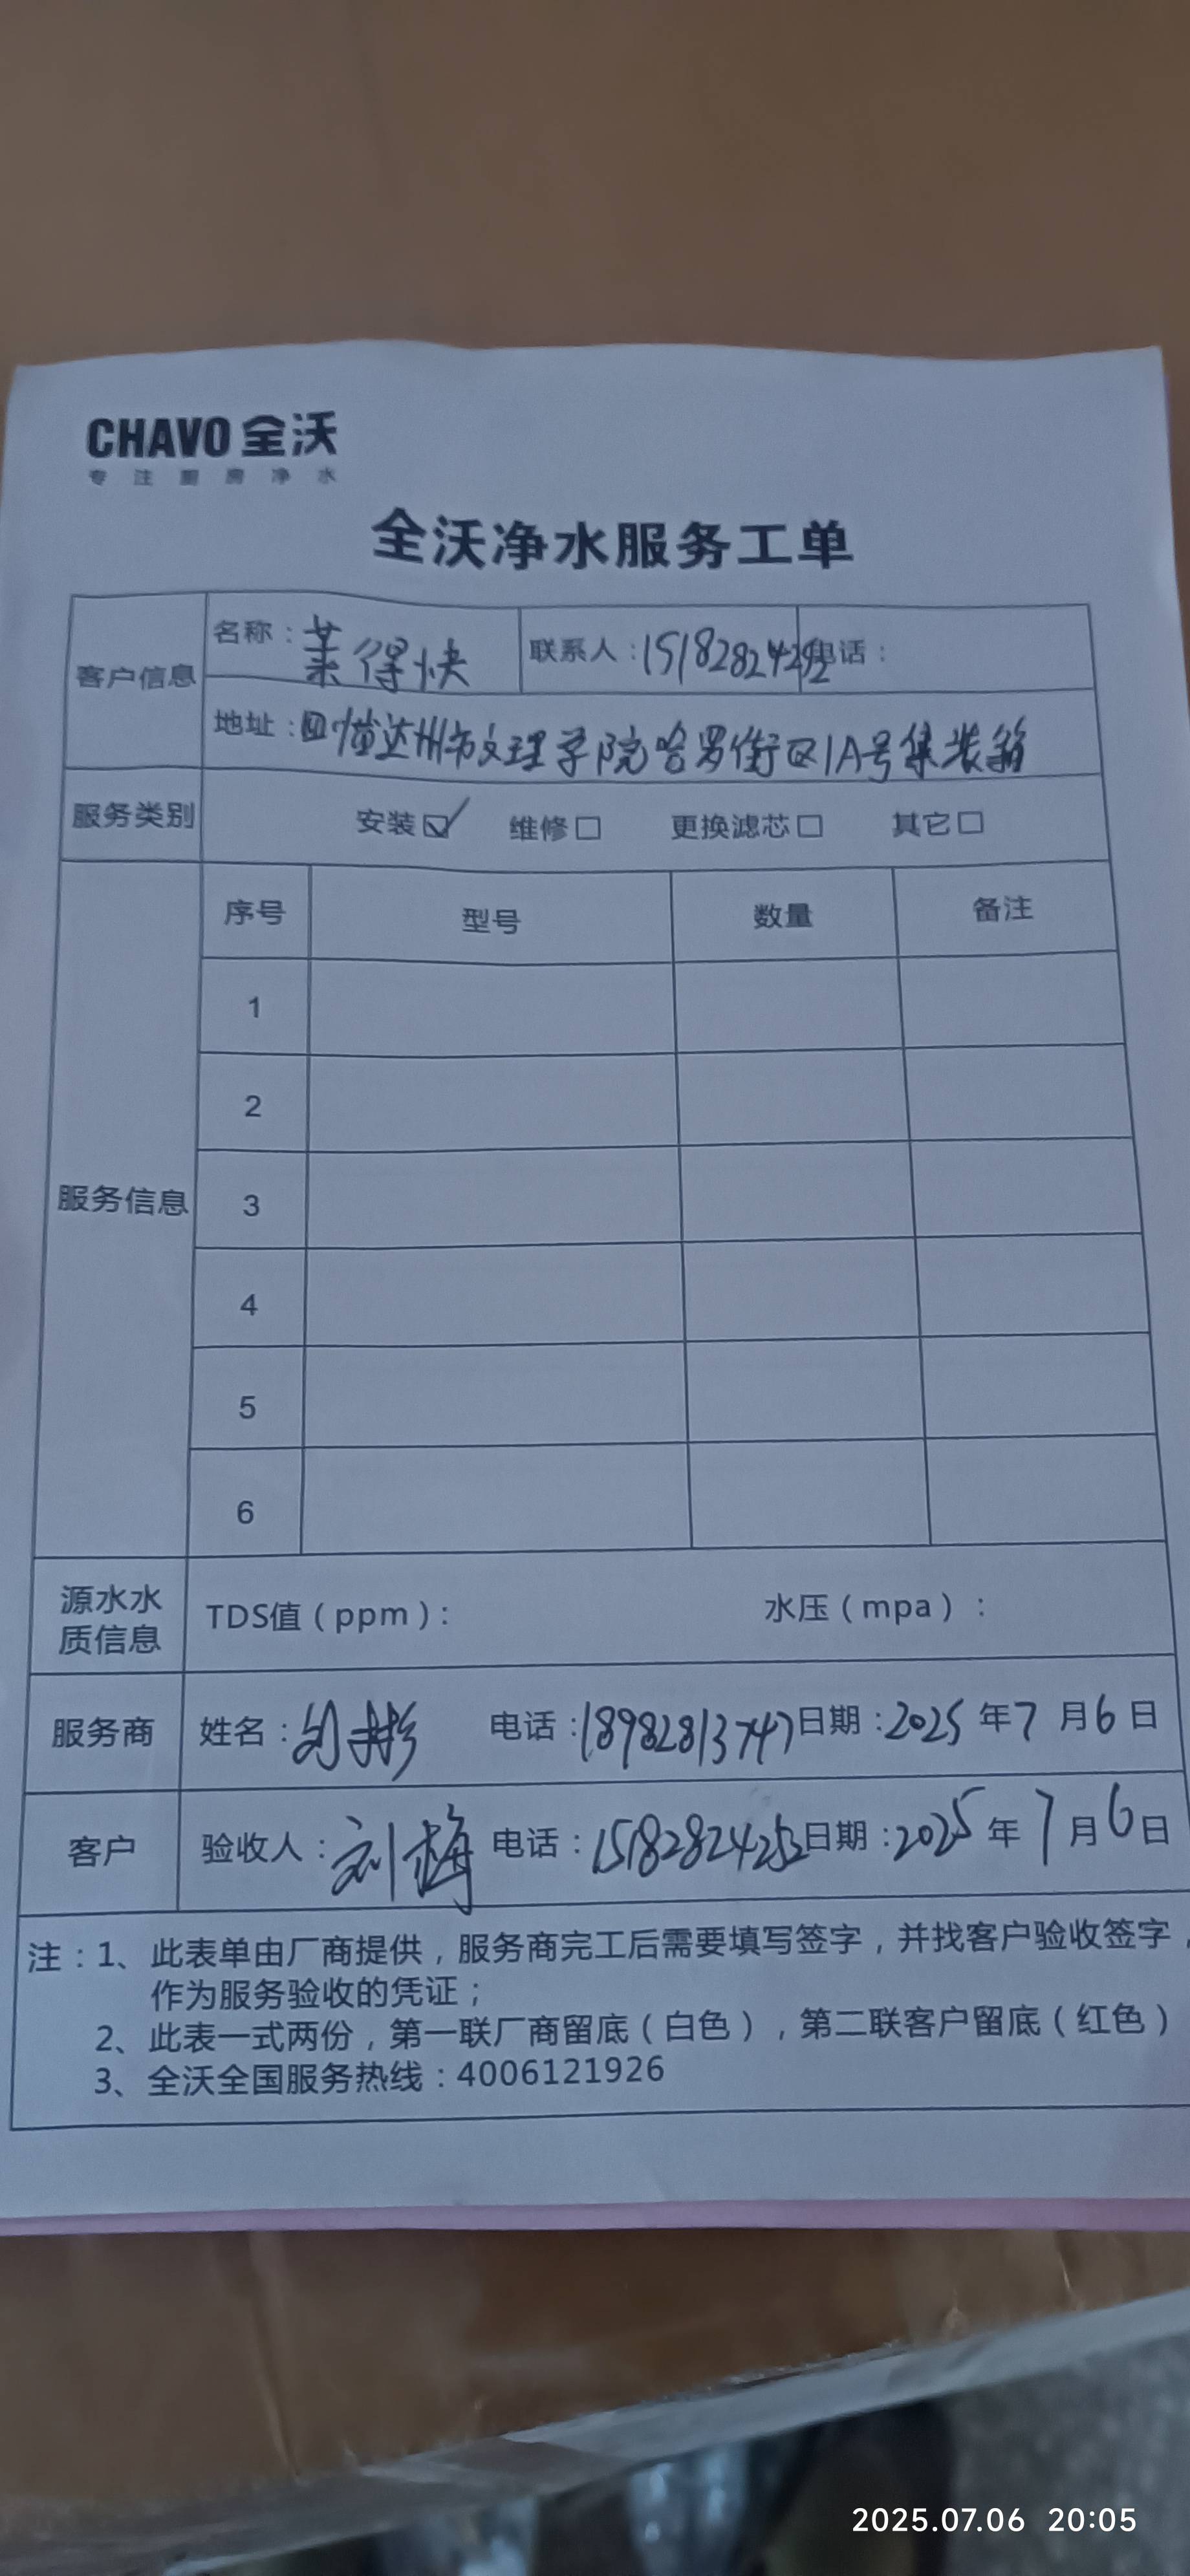 CHAVO 全沃
专注厨房净水
全沃净水服务工单
客户信息 名称：莱得快 联系人：15182824252 电话：
地址：四川省达州市文理学院哈罗街区1A号集装箱
服务类别 安装☑ 维修□ 更换滤芯□ 其它□
服务信息
序号 型号 数量 备注
1
2
3
4
5
6
源水水质信息 TDS值（ppm）： 水压（mpa）：
服务商 姓名： 电话：18982813747 日期：2025年7月6日
客户 验收人：刘梅 电话：15182824252 日期：2025年7月6日
注：1、此表单由厂商提供，服务商完工后需要填写签字，并找客户验收签字，
作为服务验收的凭证；
2、此表一式两份，第一联厂商留底（白色），第二联客户留底（红色）
3、全沃全国服务热线：4006121926
2025.07.06 20:05